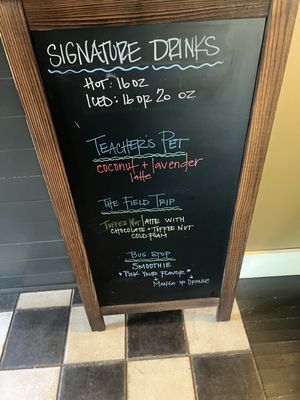 SIGNATURE DRINKS
HOT: 16 OZ
ICED: 16 OR 20 OZ.
TEACHER'S PET
coconut + lavender
latte
THE FIELD TRIP
TOFFEE NUT LATTE WITH
CHOCOLATE + TOFFEE NUT
COLD FOAM
BUS STOP
SMOOTHIE
*PICK YOUR FLAVOR*
MANGO OR ORANGE